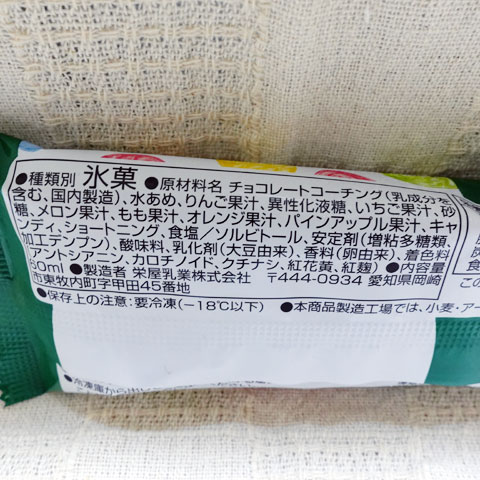 ●種類別 氷菓 ●原材料名 チョコレートコーチング(乳成分を
含む、国内製造)、水あめ、りんご果汁、異性化液糖、いちご果汁、砂
糖、メロン果汁、もも果汁、オレンジ果汁、パインアップル果汁、キャ
ンディ、ショートニング、食塩/ソルビトール、安定剤(増粘多糖類、
加工デンプン)、酸味料、乳化剤(大豆由来)、香料(卵由来)、着色料
(アントシアニン、カロチノイド、クチナシ、紅花黄、紅麹) ●内容量
60ml ●製造者 栄屋乳業株式会社 〒444-0934 愛知県岡崎
市東牧内町字甲田45番地
●保存上の注意:要冷凍(-18℃以下) ●本商品製造工場では、小麦・アー
●冷凍庫から出し
こ